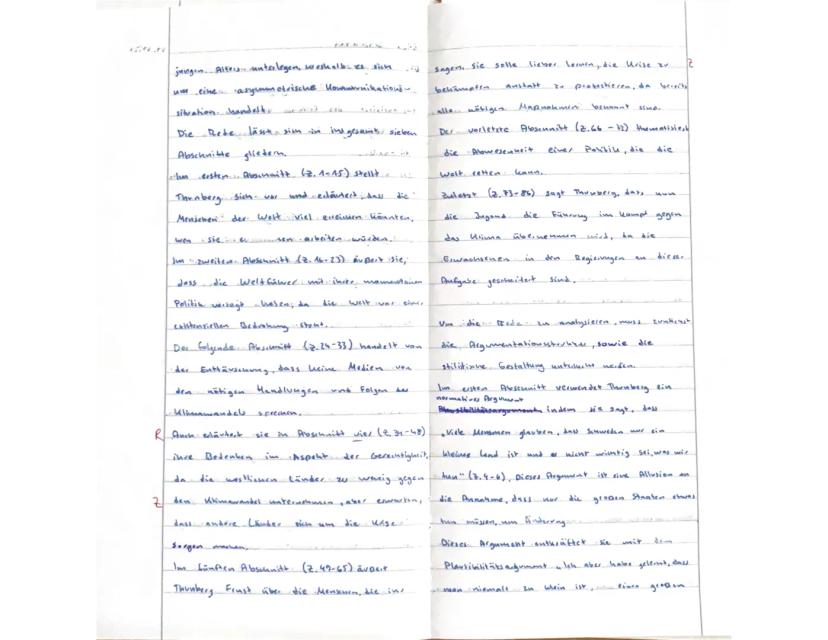 jungen Alters unterlegen, weshalb es sich
um eine asymmetrische Kommunikations-
situation handelt.
Die Rede lässt sich in insgesamt sieben
Abschnitte gliedern.
Im ersten Abschnitt (Z. 1-15) stellt
Thunberg sich vor und erläutert, dass die
Menschen der Welt viel erreichen könnten,
wen sie arbeiten würden.
Im zweiten Abschnitt (Z. 16-23) äußert sie,
dass die Weltführer mit ihrer momentanen
Politik versagt haben, da die Welt vor einer
existenziellen Bedrohung steht.
Der folgende Abschnitt (Z. 24-33) handelt von
der Enttäuschung, dass keine Medien von
den nötigen Handlungen und Folgen des
Klimawandels sprechen.
R Auch erläutert sie in Abschnitt vier (Z. 34-48)
ihre Bedenken im Aspekt der Gerechtigkeit,
da die westlichen Länder zu wenig gegen
Z den Klimawandel unternehmen, aber erwarten,
dass andere Länder sich um die Krise
Sorgen machen.
Im fünften Abschnitt (Z. 49-65) äußert
Thunberg Frust über die Menschen, die ihr
sagen, sie solle lieber lernen, die Krise zu Z
bekämpfen anstatt zu protestieren, da bereits
alle nötigen Maßnahmen bekannt sind.
Der vorletzte Abschnitt (Z. 66-72) thematisiert
die Abwesenheit einer Politik, die die
Welt retten kann.
Zuletzt (Z. 73-86) sagt Thunberg, dass nun
die Jugend die Führung im Kampf gegen
das Klima übernehmen wird, da die
Erwachsenen in den Regierungen an dieser
Aufgabe gescheitert sind.
Um die Rede zu analysieren, muss zunächst
die Argumentationsstruktur, sowie die
stilistische Gestaltung untersucht werden.
Im ersten Abschnitt verwendet Thunberg ein
normatives Argument
Plausibilitätsargument indem sie sagt, dass
„Viele Menschen glauben, dass Schweden nur ein
kleines Land ist und es nicht wichtig sei, was wir
tun" (Z. 4-6), Dieses Argument ist eine Allusion an
die Annahme, dass nur die großen Staaten etwas
tun müssen, um Änderung
Dieses Argument entkräftet sie mit dem
Plausibilitätsargument „Ich aber habe gelernt, dass
man niemals zu klein ist, einen großen